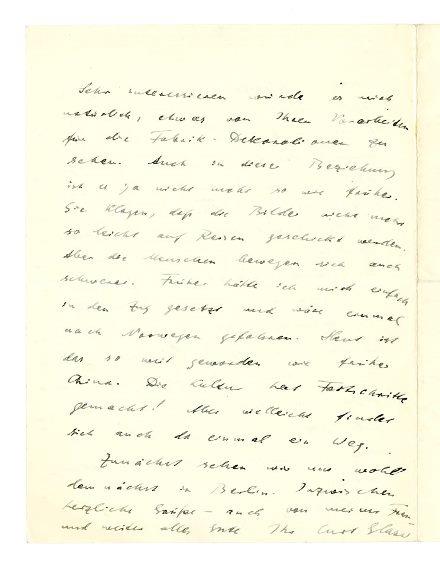 Sehr interessieren würde es mich
natürlich, etwas von Ihren Vorarbeiten
für die Fabrik-Dekorationen zu
sehen. Auch in dieser Beziehung
ist es ja nicht mehr so wie früher.
Sie klagen, daß die Bilder nicht mehr
so leicht auf Reisen geschickt werden.
Aber die Menschen bewegen sich auch
schwerer. Früher hätte ich mich einfach
in den Zug gesetzt und wäre einmal
nach Norwegen gefahren. Heut ist
das so weit geworden wie früher
China. Die Kultur hat Fortschritte
gemacht! Aber vielleicht findet
sich auch da einmal ein Weg.
Zunächst sehen wir uns wohl
demnächst in Berlin. Inzwischen
herzliche Grüße – auch von meiner Frau
und weiter alles Gute Ihr Curt Glaser